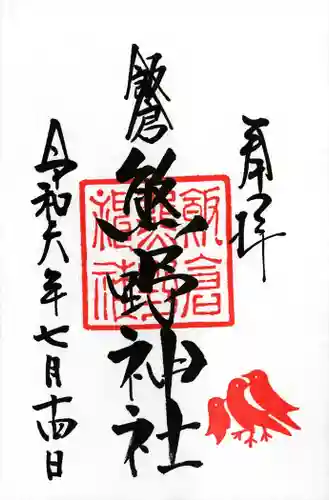 奉拝
飯倉
熊野神社
飯倉
熊野
神社
令和六年七月十四日